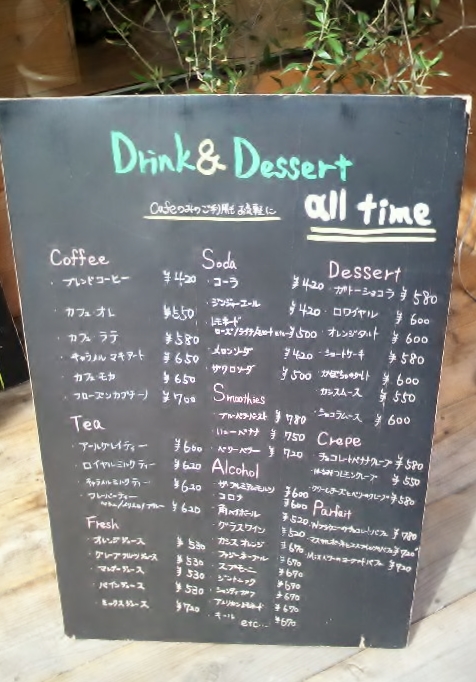 Drink & Dessert
Cafeのみのご利用も お気軽に
all time
Coffee
・ブレンドコーヒー ¥420
・カフェ・オレ ¥550
・カフェ ラテ ¥580
・キャラメル マキアート ¥650
・カフェ モカ ¥650
・フローズンカプチーノ ¥700
Tea
・アールグレイティー ¥600
・ロイヤルミルクティー ¥620
・キャラメルミルクティー ¥620
・フレーバーティー
¥620
Fresh
・オレンジジュース ¥530
・グレープフルーツジュース ¥530
・マンゴージュース ¥530
・パインジュース ¥530
・ミックスジュース ¥720
Soda
・コーラ ¥420
・ジンジャーエール ¥420
・レモネード
¥500
・メロンソーダ ¥420
・ザクロソーダ ¥500
Smoothies
¥780
¥750
・ベリーベリー ¥720
Alcohol
・ザ・プレミアムモルツ ¥600
・コロナ ¥600
・角ハイボール ¥520
・グラスワイン ¥520
・カシスオレンジ ¥670
・ファジーネーブル ¥670
・スプモーニ ¥670
・ジントニック ¥670
・シャンディガフ ¥670
・アメリカンレモネード ¥670
・キール ¥670
etc...
Dessert
・ガトーショコラ ¥580
・ロワイヤル ¥600
・オレンジタルト ¥600
・ショートケーキ ¥580
・かぼちゃのタルト ¥600
・カシスムース ¥550
・ショコラムース ¥600
Crepe
・チョコレートバナナクレープ ¥580
・はちみつレモンクレープ ¥550
¥580
Parfait
¥780
¥720
¥720